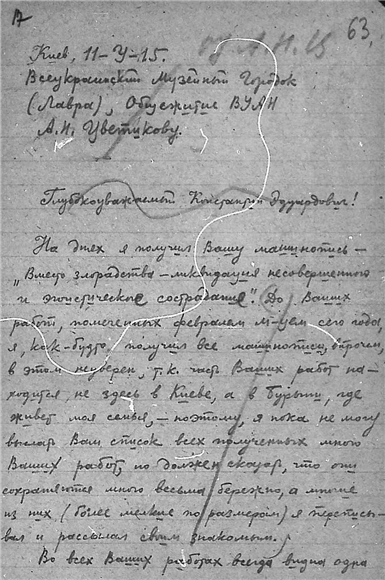 63.
Киев, 11-V-15.
Всеукраинский Музейный Городок
(Лавра), Общежитие ВУАН
А.И. Цветикову.
Глубокоуважаемый Константин Эдуардович!
На днях я получил Вашу машинопись –
„Вместо злорадства – ликвидация несовершенного
и эгоистическое сострадание". До Ваших
работ, помеченных февралем м-цем сего года
я, как-будто, получил все машинописи, впрочем,
в этом неуверен, т.к. часть Ваших работ на-
ходится, не здесь в Киеве, а в Бурыни, где
живет моя семья, – поэтому, я пока не могу
выслать Вам список всех полученных мною
Ваших работ, но должен сказать, что они
сохраняются мною весьма бережно, а многие
из них (более мелкие по размером) я переписы-
вал и рассылал своим знакомым.
Во всех Ваших работах всегда видна одна